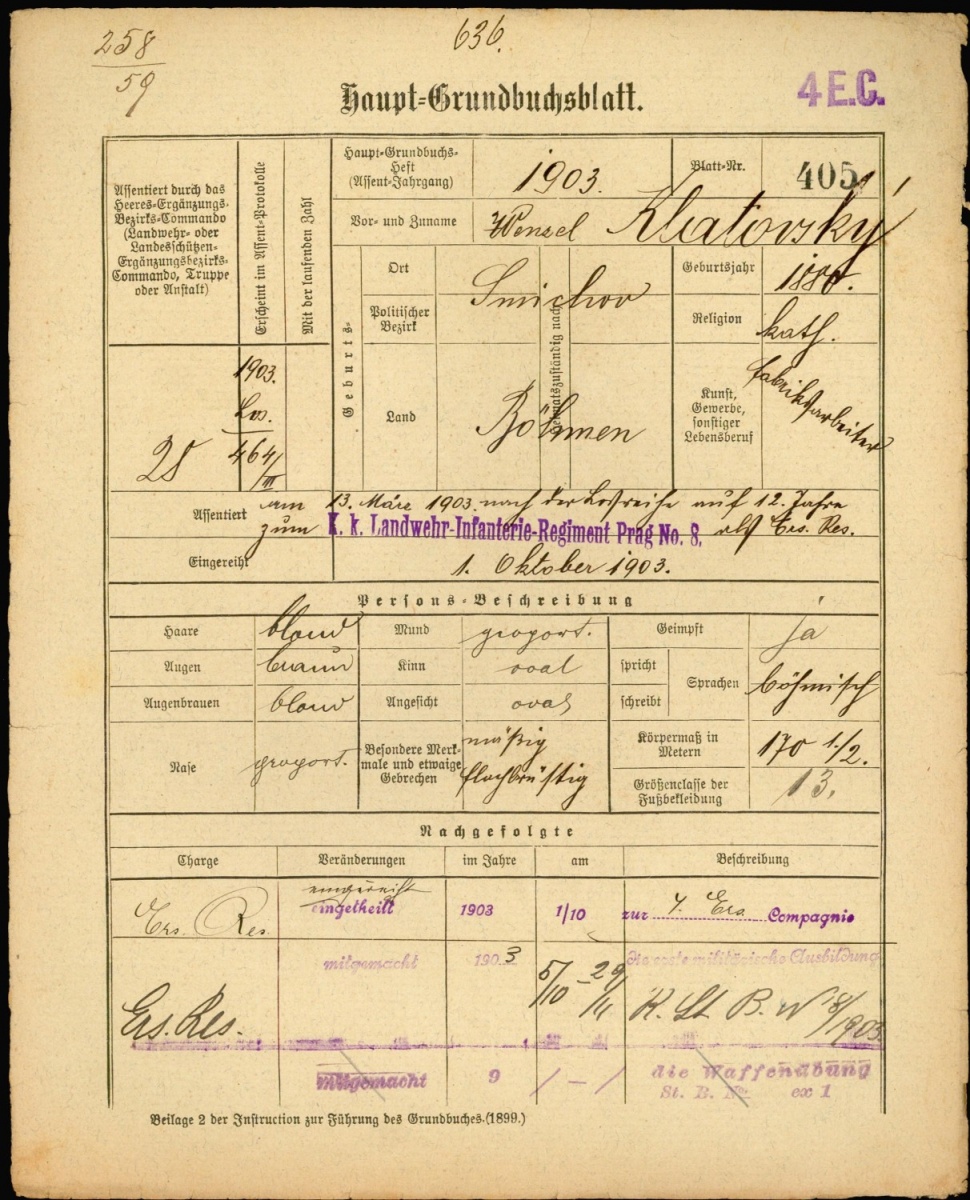 258
59
636.
4 E.C.
Haupt-Grundbuchsblatt.
Assentiert durch das
Heeres-Ergänzungs-
Bezirks-Commando
(Landwehr- oder
Landesschützen-
Ergänzungsbezirks-
Commando, Truppe
oder Anstalt)
Erscheint im Assent-Protokolle
Mit der laufenden Zahl
28
1903.
Los.
464/III
Haupt-Grundbuchs-
Heft
(Assent-Jahrgang)
1903.
Blatt-Nr.
405
Vor- und Zuname
Wenzel Klatovský
Geburts-
Ort
Smichov
Politischer
Bezirk
Land
Böhmen
Heimatszuständig nach
Geburtsjahr
1880.
Religion
kath.
Kunst,
Gewerbe,
sonstiger
Lebensberuf
Fabriksarbeiter
Assentiert
am 13. März 1903. nach der Losreihe auf 12 Jahre
zum K. k. Landwehr-Infanterie-Regiment Prag No. 8. als Ers. Res.
Eingereiht
1. Oktober 1903.
Persons-Beschreibung
Haare blond Mund proport. Geimpft ja
Augen braun Kinn oval spricht Sprachen böhmisch
Augenbrauen blond Angesicht oval schreibt
Nase proport. Besondere Merk-
male und etwaige
Gebrechen
mäßig
flachbrüstig
Körpermaß in
Metern
170 1/2.
Größenclasse der
Fußbekleidung
13.
Nachgefolgte
Charge Veränderungen im Jahre am Beschreibung
eingereiht
Ers. Res. eingetheilt 1903 1/10 zur 4. Ers. Compagnie
mitgemacht 1903 5/10 - 29/11 die erste militärische Ausbildung
Ers. Res. K. St. B. N 8/1903
mitgemacht 9 / - / die Waffenübung
St. B. No ex 1
Beilage 2 der Instruction zur Führung des Grundbuches.(1899.)